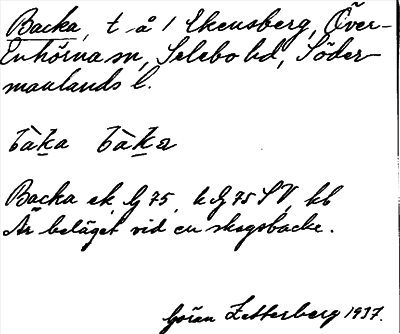 Backa, t å 1 Ekensberg, Över-
Enhörna sn, Selebo hd, Söder-
manlands l.
bàka bàkа
Backa ek G 75, k G 75 SV, kb
Är beläget vid en skogsbacke.
Göran Zetterberg 1937.